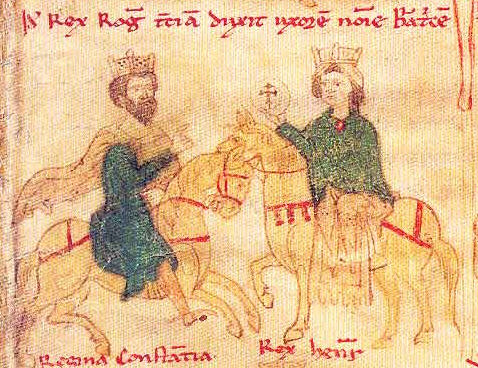 Rex Rog̅ t̅ciā duxit uxorē nōie b̅at̅cē
Regina Constātia
Rex henr̅